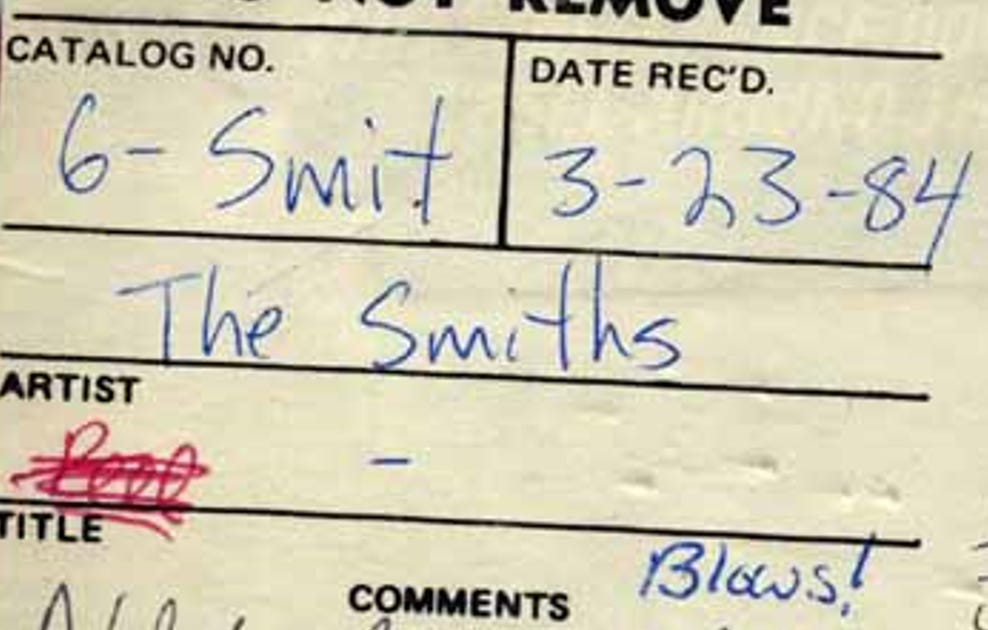 NOT REMOVE
CATALOG NO. DATE REC'D.
6- Smit 3-23-84
The Smiths
ARTIST
-
TITLE
Blows!
COMMENTS